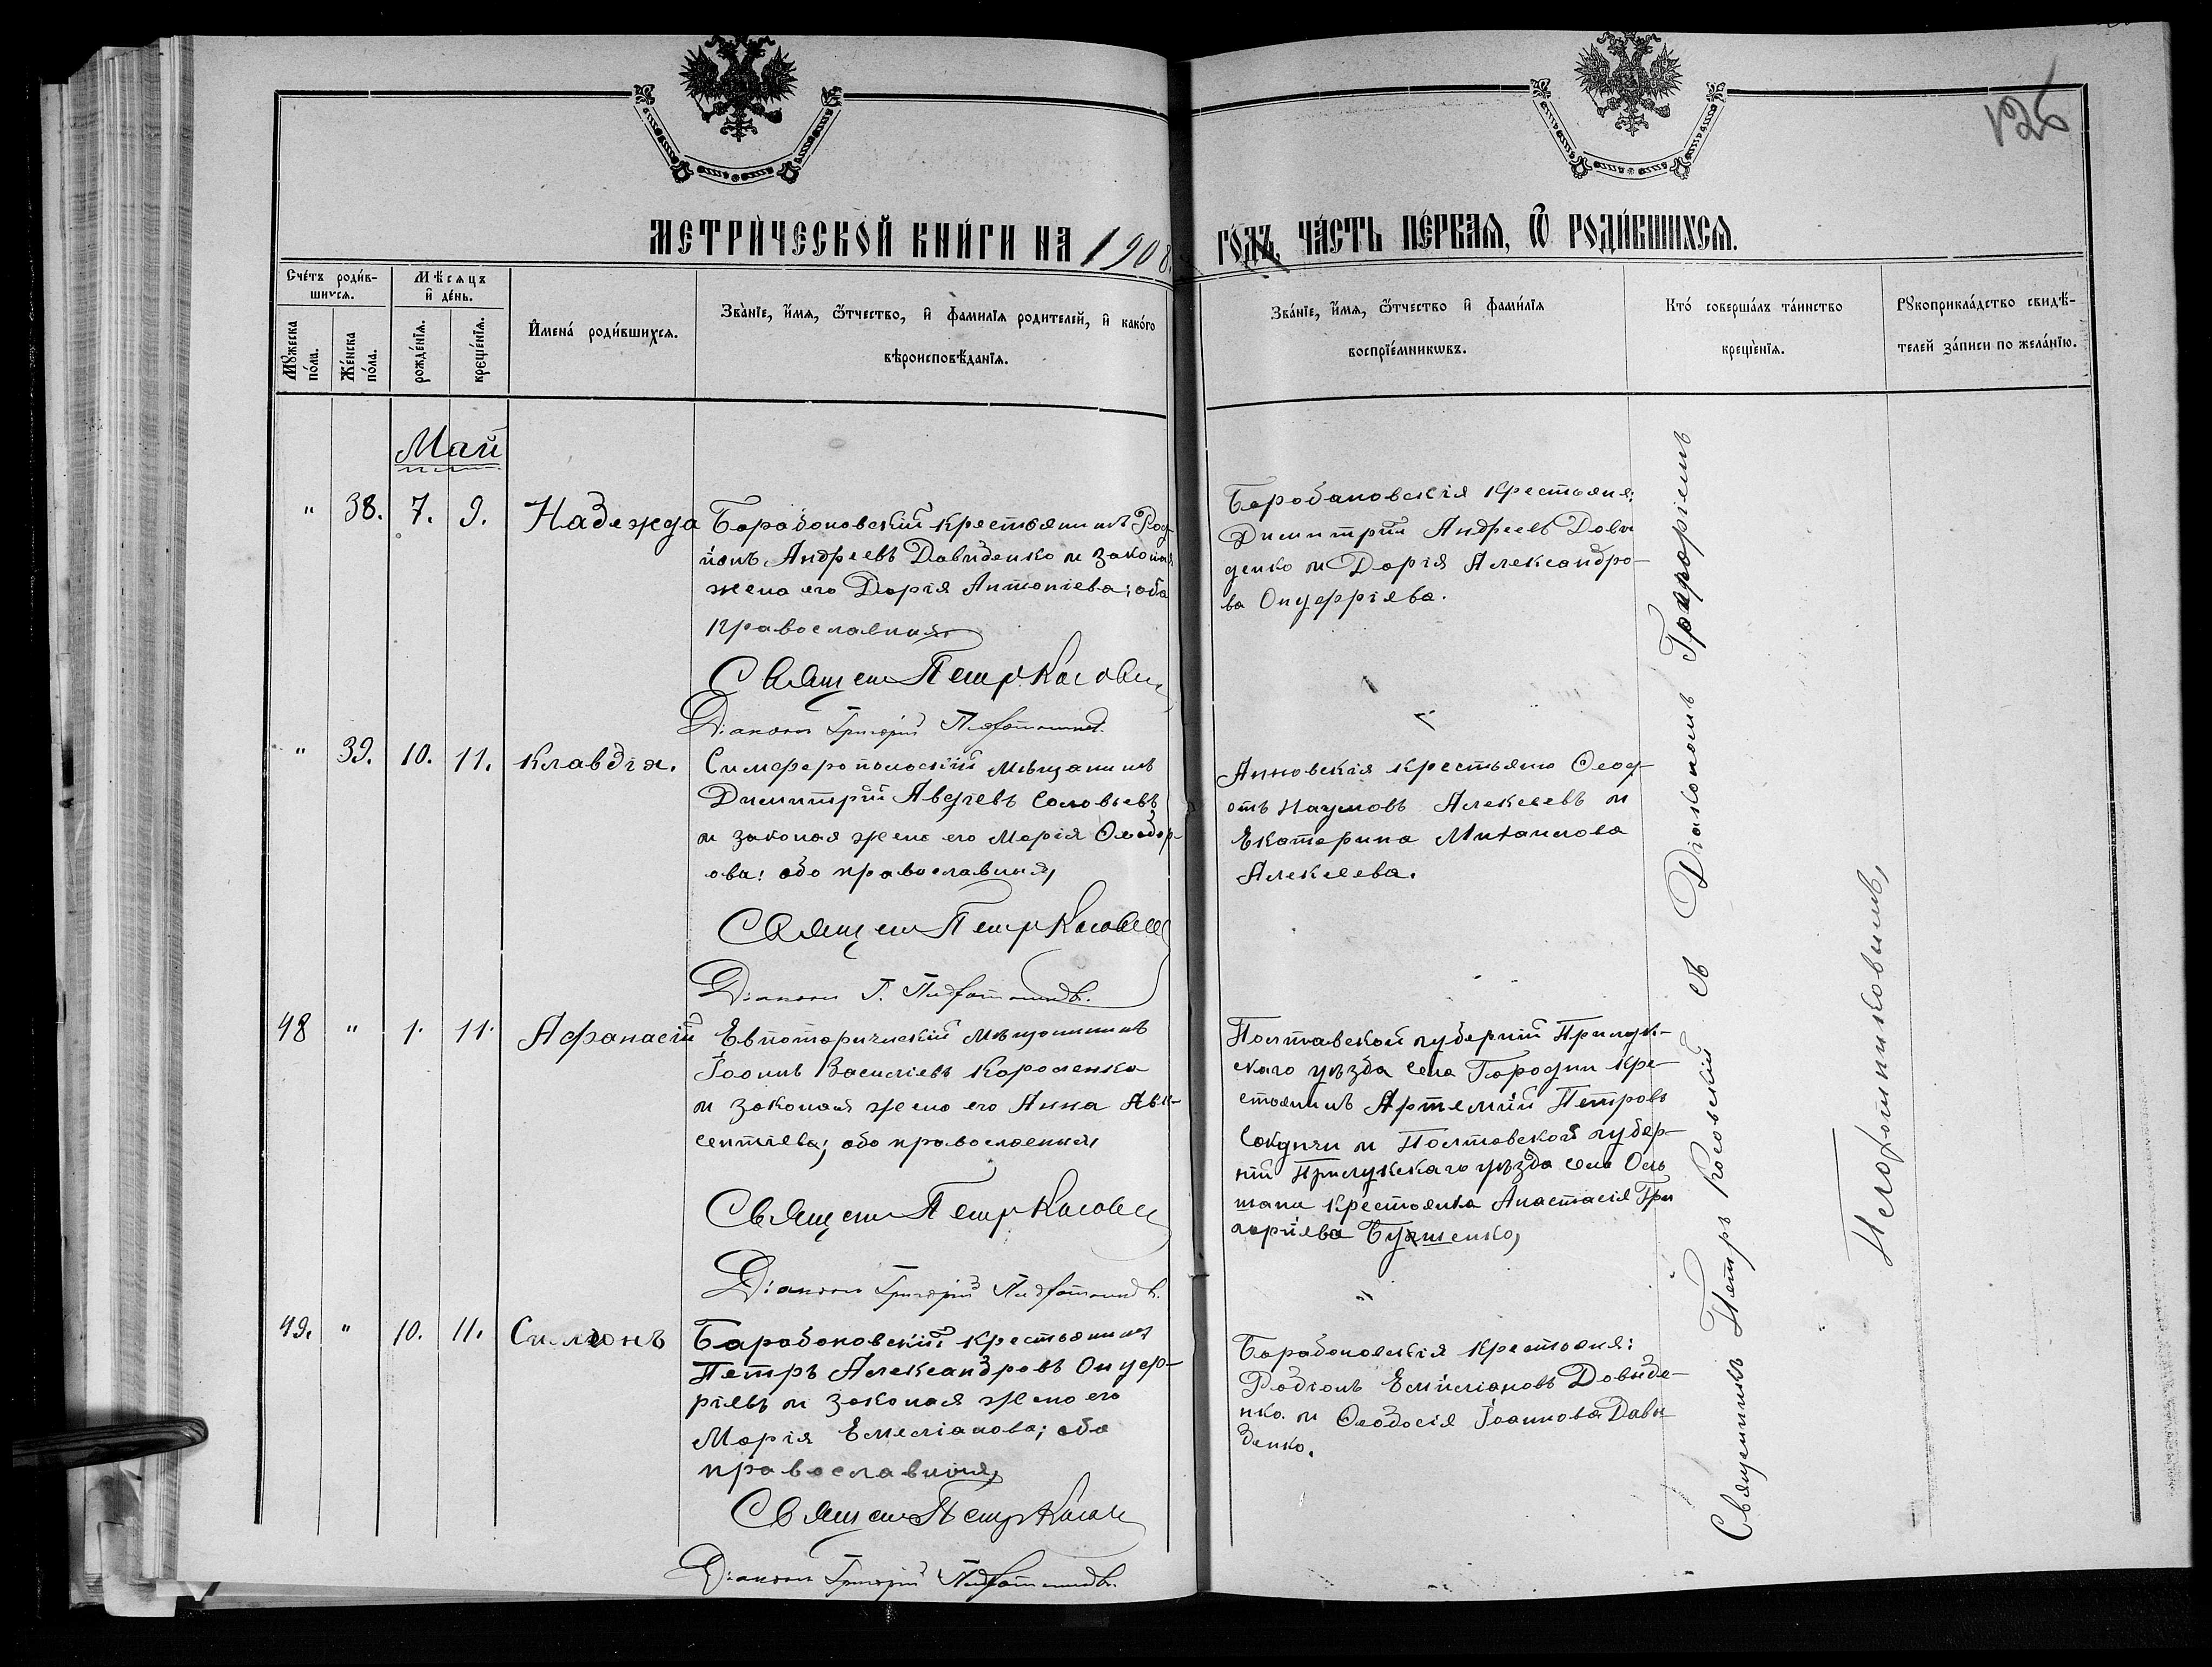 126
МЕТРИЧЕСКОЙ КНИГИ НА 1908 ГОДЪ, ЧАСТЬ ПЕРВАЯ, Ѡ РОДИВШИХСЯ.
Счетъ родив-
шихся.
Мѣсяцъ
и день.
Мужеска пола.
Женска пола.
рожденія.
крещенія.
Имена родившихся.
Званіе, имя, ѿчество, и фамилія родителей, и какого
вѣроисповѣданія.
Званіе, имя, ѿчество и фамилія
воспріемникѡвъ.
Кто совершалъ таинство
крещенія.
Рукоприкладство свидѣ-
телей записи по желанію.
Май
" 38. 7. 9. Надежда
Барабановскій крестьянинъ Род-
іонъ Андреевъ Давиденко и законая
жена его Дарія Антоніева; оба
православныя
Священ Петр Косовск
Діаконъ Григорій
Барабановскія крестьяне:
Димитрій Андреевъ Дави
денко и Дарія Александро-
ва Онуфріева.
" 39. 10. 11. Клавдія.
Симферопольскій мѣщанинъ
Димитрій Авдіевъ Соловьевъ
и законая жена его Марія Ѳеодор-
ова; оба православныя
Священ Петр Косовск
Діаконъ Г.
Анновскія крестьяне Ѳеод-
отъ Наумовъ Алексеевъ и
Екатерина Михаилова
Алексеева.
48 " 1. 11. Афанасій
Евпаторійскій мѣщанинъ
Іоаннъ Василіевъ Короленко
и законая жена его Анна Авк-
сентіева; оба православныя
Священ Петр Косовск
Діаконъ Григорій
Полтавской губерніи Прилук-
скаго уѣзда села Городни кре-
стьянинъ Артемій Петровъ
и Полтавской губер-
ніи Прилукскаго уѣзда села Оль
шани крестьянка Анастасія Гри
горіева
49. " 10. 11. Симеонъ
Барабановскій крестьянинъ
Петръ Александровъ Онуф-
ріевъ и законая жена его
Марія Емеліанова; оба
православныя,
Священ Петр Косовск
Діаконъ Григорій
Барабановскія крестьяне:
Родіонъ Емиліановъ Давиде-
нко и Ѳеодосія Іоаннова Дави-
денко.
Священникъ Петръ Косовскій съ Діакономъ Григоріемъ